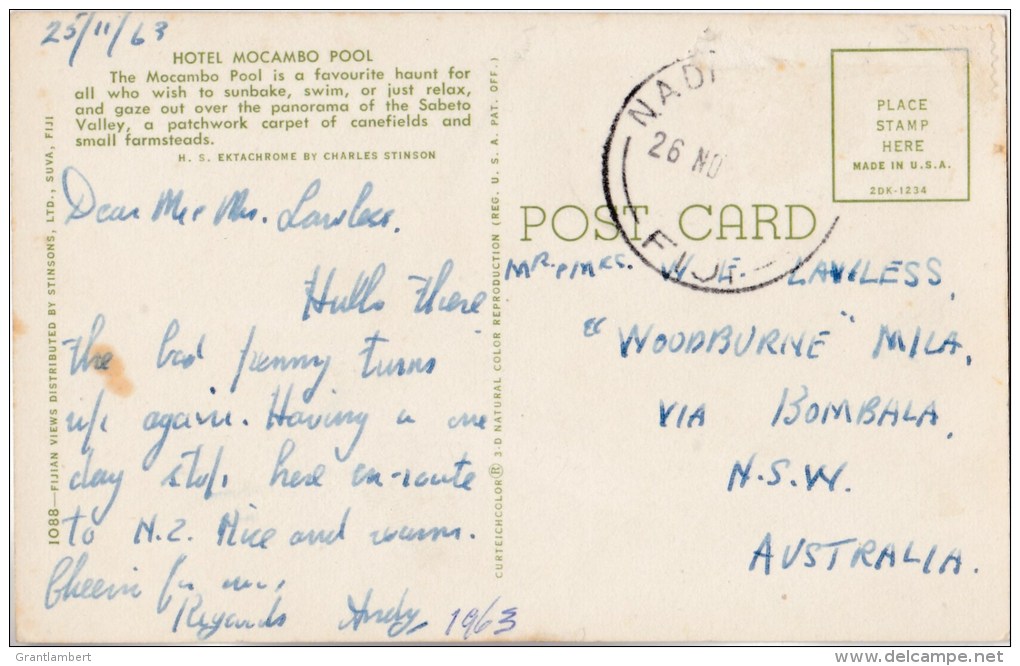 25/11/63
HOTEL MOCAMBO POOL
The Mocambo Pool is a favourite haunt for
all who wish to sunbake, swim, or just relax,
and gaze out over the panorama of the Sabeto
Valley, a patchwork carpet of canefields and
small farmsteads.
H. S. EKTACHROME BY CHARLES STINSON
Dear Mr & Mrs. Lawless.
Hullo there
the bad penny turns
up again. Having a one
day stop here en-route
to N.Z. Nice and warm.
Cheerio for now,
Regards Andy, 1963
1088—FIJIAN VIEWS DISTRIBUTED BY STINSONS, LTD., SUVA, FIJI
CURTEICHCOLOR® 3-D NATURAL COLOR REPRODUCTION (REG. U. S. A. PAT. OFF.)
POST CARD
NADI
26 NO
FIJI
PLACE
STAMP
HERE
MADE IN U.S.A.
2DK-1234
MR. & MRS. W. E. LAWLESS,
"WOODBURNE" MILA,
VIA BOMBALA,
N.S.W.
AUSTRALIA.
© Grantlambert
www.delcampe.net